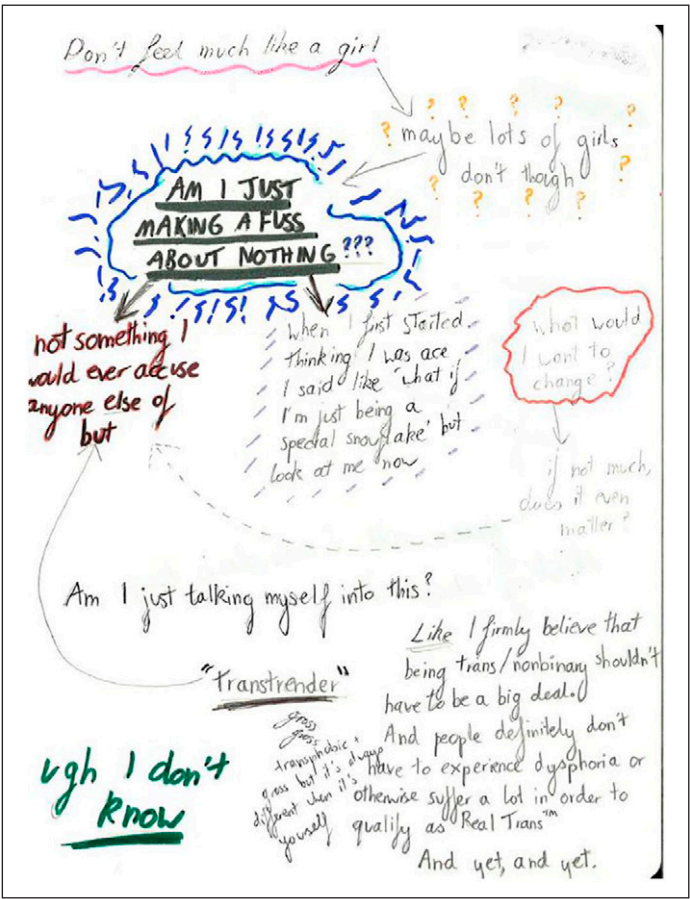 Don't feel much like a girl
? ? ? ? ?
? maybe lots of girls
don't though ?
? ? ? ? ?
AM I JUST
MAKING A FUSS
ABOUT NOTHING ???
not something I
would ever accuse
anyone else of
but
When I first started
thinking I was ace
I said like 'what if
I'm just being a
special snowflake' but
look at me now
what would
I want to
change?
if not much,
does it even
matter?
Am I just talking myself into this?
"Transtrender"
gross
gross
transphobic +
gross but it's always
different when it's
yourself
ugh I don't
know
Like I firmly believe that
being trans/nonbinary shouldn't
have to be a big deal.
And people definitely don't
have to experience dysphoria or
otherwise suffer a lot in order to
qualify as Real Trans™
And yet, and yet.